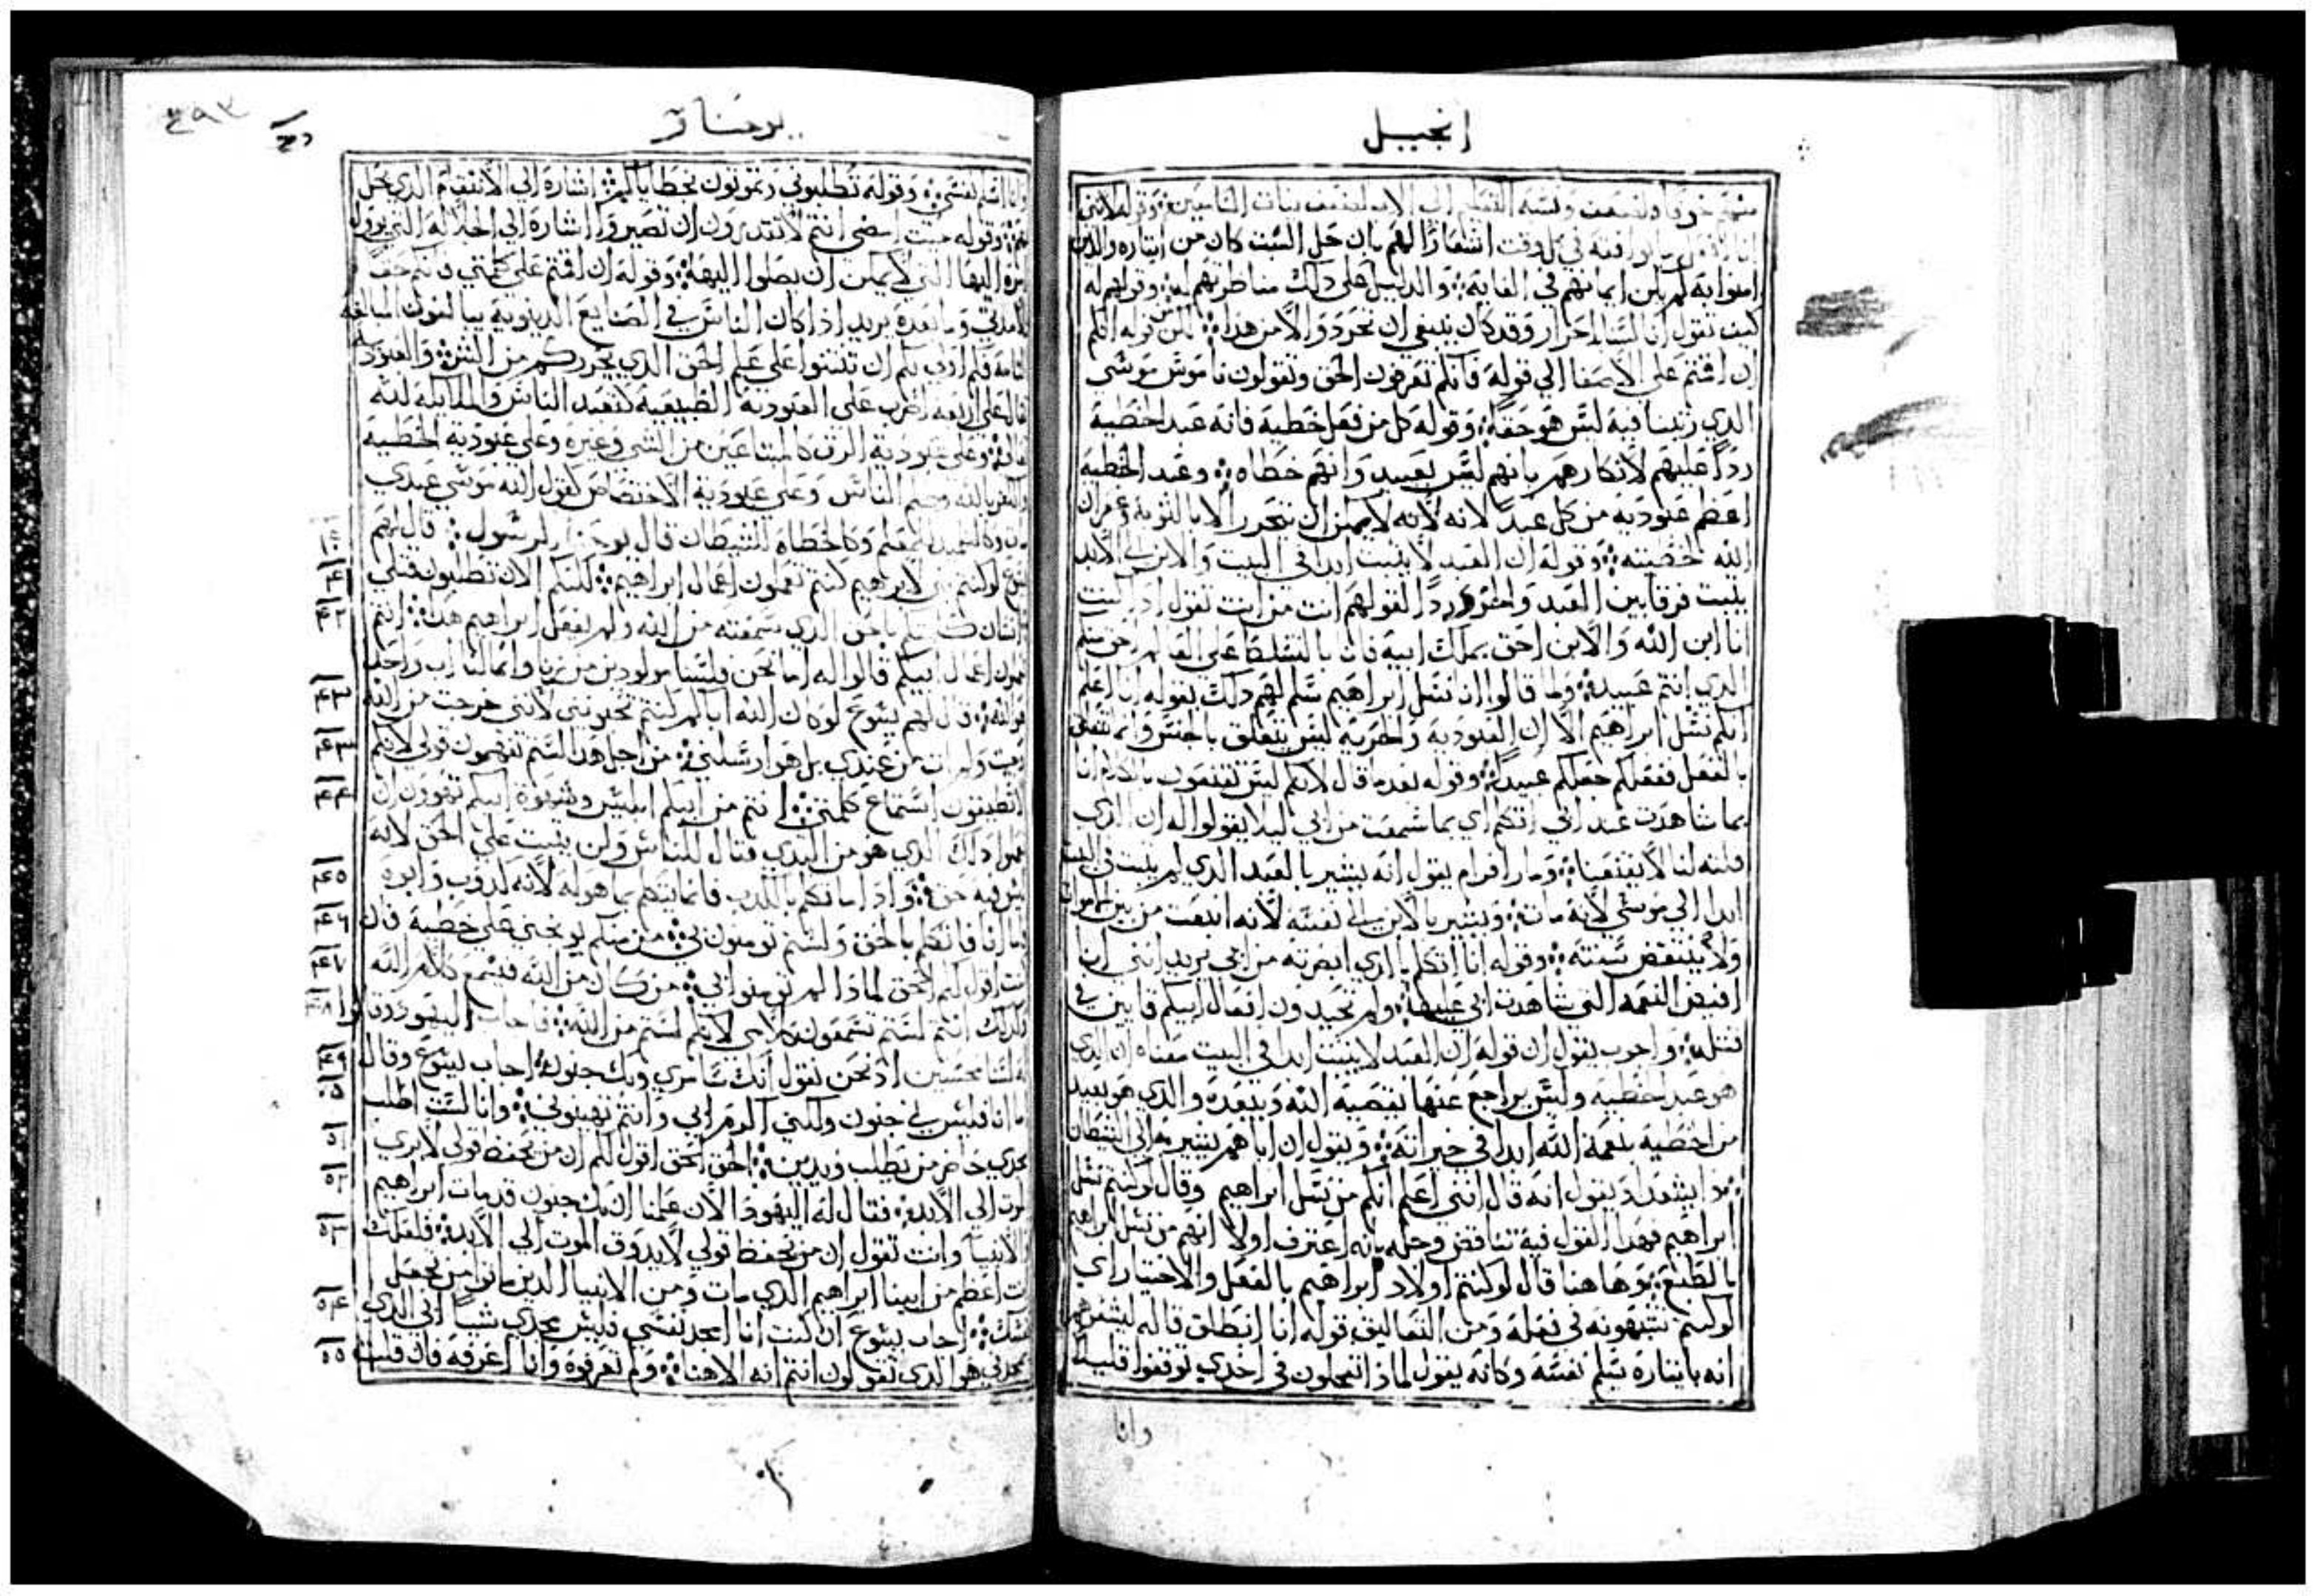 انجيل
امنوا به لم يكن ايمانهم في الغاية والدليل على ذلك مناظرتهم له وقولهم له
كيف تقول اننا لسنا احرار وقد كان ينبغي ان نحرر والامر هذا لكن قوله انكم
ان اقمتم على الاصغا الى قوله فانكم تعرفون الحق وتقولون ناموس موسى
الذي ربينا فيه ليس هو حقا وقوله كل من فعل خطية فانه عبد الخطية
ردا عليهم لانكارهم بانهم ليس بعبيد وانهم خطاه وعبد الخطية
اعظم عبودية من كل عبد لانه لانه لا يمكن ان يتحرر الا بالتوبة وغفران
الله خطيته وقوله ان العبد لا يثبت ابدا في البيت والابن الى الابد
يثبت فرقا بين العبد والحر وردا لقولهم انت من انت تقول اذ كنت
انا ابن الله والابن احق بملك ابيه فانا بالتسلط على العالم احق منكم
الذي انتم عبيده ولما قالوا ان نسل ابراهيم سلم لهم ذلك بقوله انا اعلم
انكم نسل ابراهيم الا ان العبودية والحرية ليس يتعلق بالجنس وانما يتعلق
بالفعل ففعلكم جعلكم عبيدا وقوله بعد ما قال لانكم ليس تقنعون بالكلام انا
بما شاهدت عند ابي اتكلم اي بما سمعت من ابي ليلا يقولوا له ان الذي
قلته لنا لا يقنعنا ومار افرام يقول انه يشير بالعبد الذي لم يثبت في البيت
ابدا الى موسى لانه مات ويشير بالابن الى نفسه لانه انبعث من بين الاموات
ولا ينتقض سنته وقوله انا اتكلم بالذي ابصرته من ابي يريد انني انا
افيض النعمة التي شاهدت ابي عليها ولم تحيدون افعال ابيكم قايين في
قتله واخرون يقول ان قوله ان العبد لا يثبت ابدا في البيت معناه ان الذي
هو عبد الخطية وليس يراجع عنها يقصيه الله ويبعده والذي هو بعيد
من الخطية بنعمة الله ابدا في خيراته ويقول ان اباهم يشير به الى الشيطان
يقول انه قال انني اعلم انكم من نسل ابراهيم وقال لو كنتم نسل
ابراهيم فهذا القول فيه تناقض وحله بانه اعترف اولا انهم من نسل ابراهيم
بالطبع وها هنا قال لو كنتم اولاد ابراهيم بالفعل والاختيار اي
لو كنتم تشبهونه في فعله ومن التعاليق قوله انا انطلق قاله ليشعرهم
انه بايثاره يسلم نفسه وكانه يقول لماذا تعجلون في اخذي توقفوا قليلا
وانا
يوحنا
٤٩٣
وانا اسلم نفسي وقوله تطلبوني وتموتون بخطاياكم اشارة الى الانتقام الذي يحل
بهم وقوله حيث امضي انتم لا تقدرون ان تصيروا اشارة الى الجلالة التي يؤول
امره اليها التي لا يمكن ان يصلوا اليها وقوله ان اقمتم على كلمتي فانكم حقا
تلامذتي وما بعده يريد اذا كان الناس في الصنايع الدنيوية يبالغون المبالغة
التامة فكم اولى بكم ان تثبتوا على علم الحق الذي يحرركم من الشر والعبودية
تقال على اربعة اضرب على العبودية الطبيعية كتعبد الناس والملايكة لله
تعالى وعلى عبودية الرق كالمبتاعين من السبي وغيره وعلى عبودية الخطية
وعلى عبودية الاختصاص كقول الله موسى عبدي
وكالخطاة للشيطان قال يوحنا الرسول قال لهم
يسوع لو كنتم بني لابراهيم كنتم تعملون اعمال ابراهيم لكنكم الان تطلبون قتلي
انسان كلمتكم بالحق الذي سمعته من الله ولم يفعل ابراهيم هذا انتم
تعملون اعمال ابيكم قالوا له اما نحن فلسنا مولودين من زنا وانما لنا اب واحد
هو الله قال لهم يسوع لو كان الله اباكم لكنتم تحبونني لانني خرجت من الله
وجيت ولم ات من عندي بل هو ارسلني من اجل هذا لستم تفهمون قولي لانكم
لا تطيقون استماع كلمتي انتم من ابيكم ابليس وشهوة ابيكم تهوون ان
تعملوا ذلك الذي هو من البدي قتال للناس ولن يثبت على الحق لانه
ليس فيه حق واذا ما تكلم بالكذب فانما يتكلم بما هو له لانه كذوب وابوه
فاما انا فاتكلم بالحق ولستم تومنون بي من منكم يوبخني على خطية فان
كنت اقول لكم الحق لماذا لم تومنوا بي من كان من الله فيسمع كلام الله
ولذلك انتم لستم تسمعون كلامي لانكم لستم من الله فاجاب اليهود وقالوا
له السنا محسنين اذ نحن نقول انك سامري وبك جنون اجاب يسوع وقال
اما انا فليس بي جنون ولكني اكرم ابي وانتم تهينوني وانا لست اطلب
مجدي حاضر من يطلب ويدين الحق الحق اقول لكم ان من يحفظ قولي لا يري
الموت الى الابد فقال له اليهود الان علمنا ان بك جنون قد مات ابراهيم
والانبيا وانت تقول ان من يحفظ قولي لا يذوق الموت الى الابد فلعلك
انت اعظم من ابينا ابراهيم الذي مات ومن الانبيا الذين ماتوا من تجعل
نفسك اجاب يسوع ان كنت انا امجد نفسي فليس مجدي شيا ابي الذي
يمجدني هو الذي تقولون انتم انه الاهنا ولم تعرفوه وانا اعرفه فان قلت